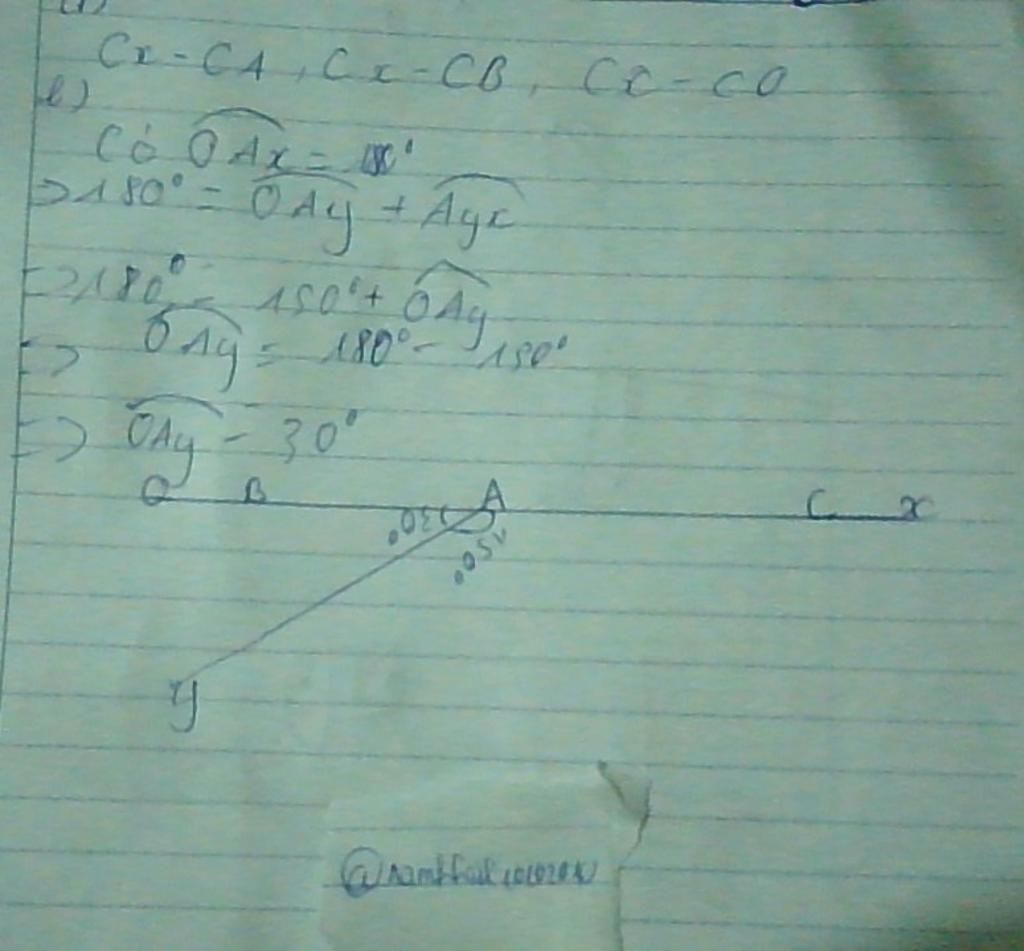 Cx - CA, Cx - CB, Cx - CO
b)
Có OAx =
=> 180° = OAy + Ayx
=> 180° = 150° + OAy
=> OAy = 180° - 150°
=> OAy = 30°
O B A C x
30°
150°
y